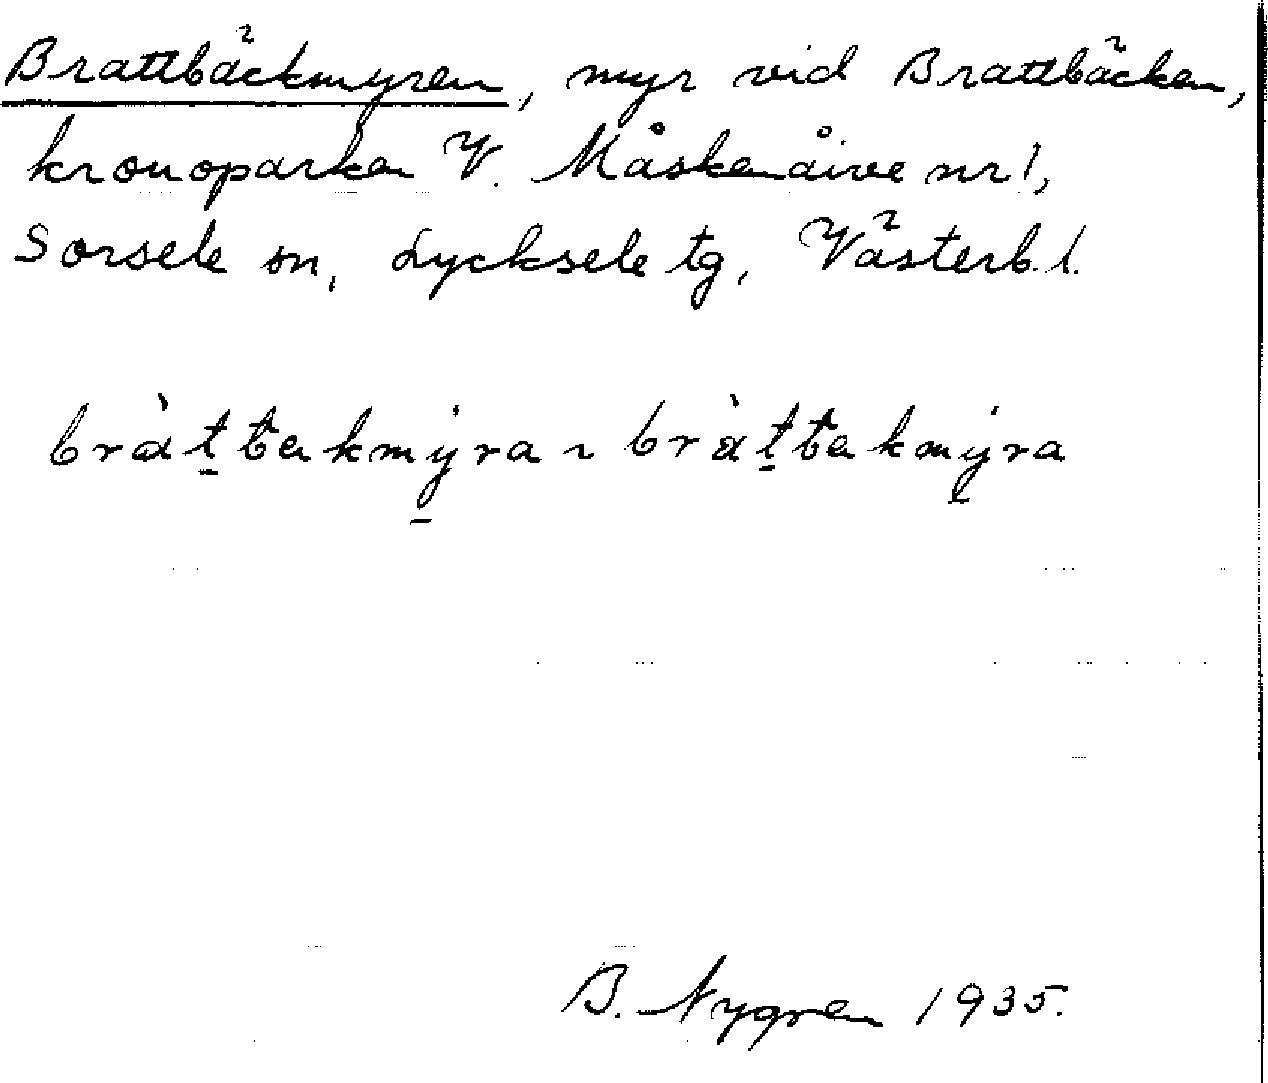 Brattbäckmyren, myr vid Brattbäcken,
kronoparken V. Måskenåive nr 1,
Sorsele sn, Lycksele tg, Västerb. l.
bràt̠tbækmýra ~ bràt̠tbækmýra
B. Nygren 1935.